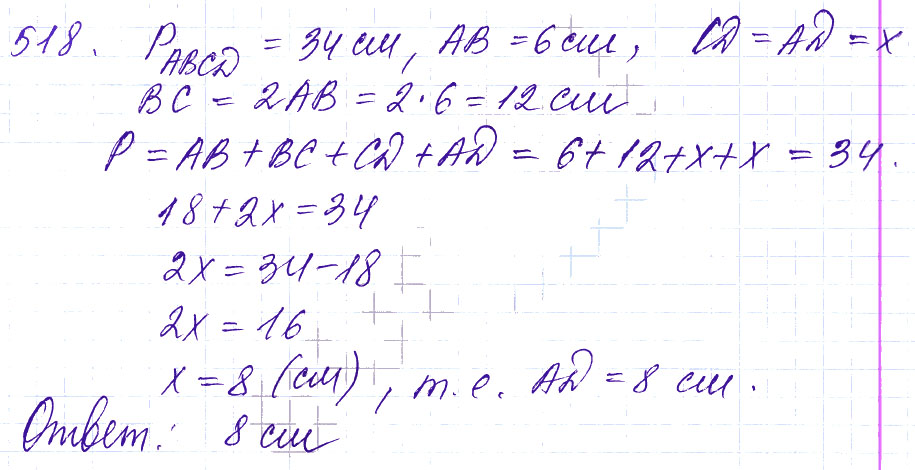 518. P_ABCD = 34 см, AB = 6 см, CD = AD = x
BC = 2AB = 2·6 = 12 см
P = AB + BC + CD + AD = 6 + 12 + x + x = 34.
18 + 2x = 34
2x = 34 - 18
2x = 16
x = 8 (см), т.е. AD = 8 см.
Ответ: 8 см